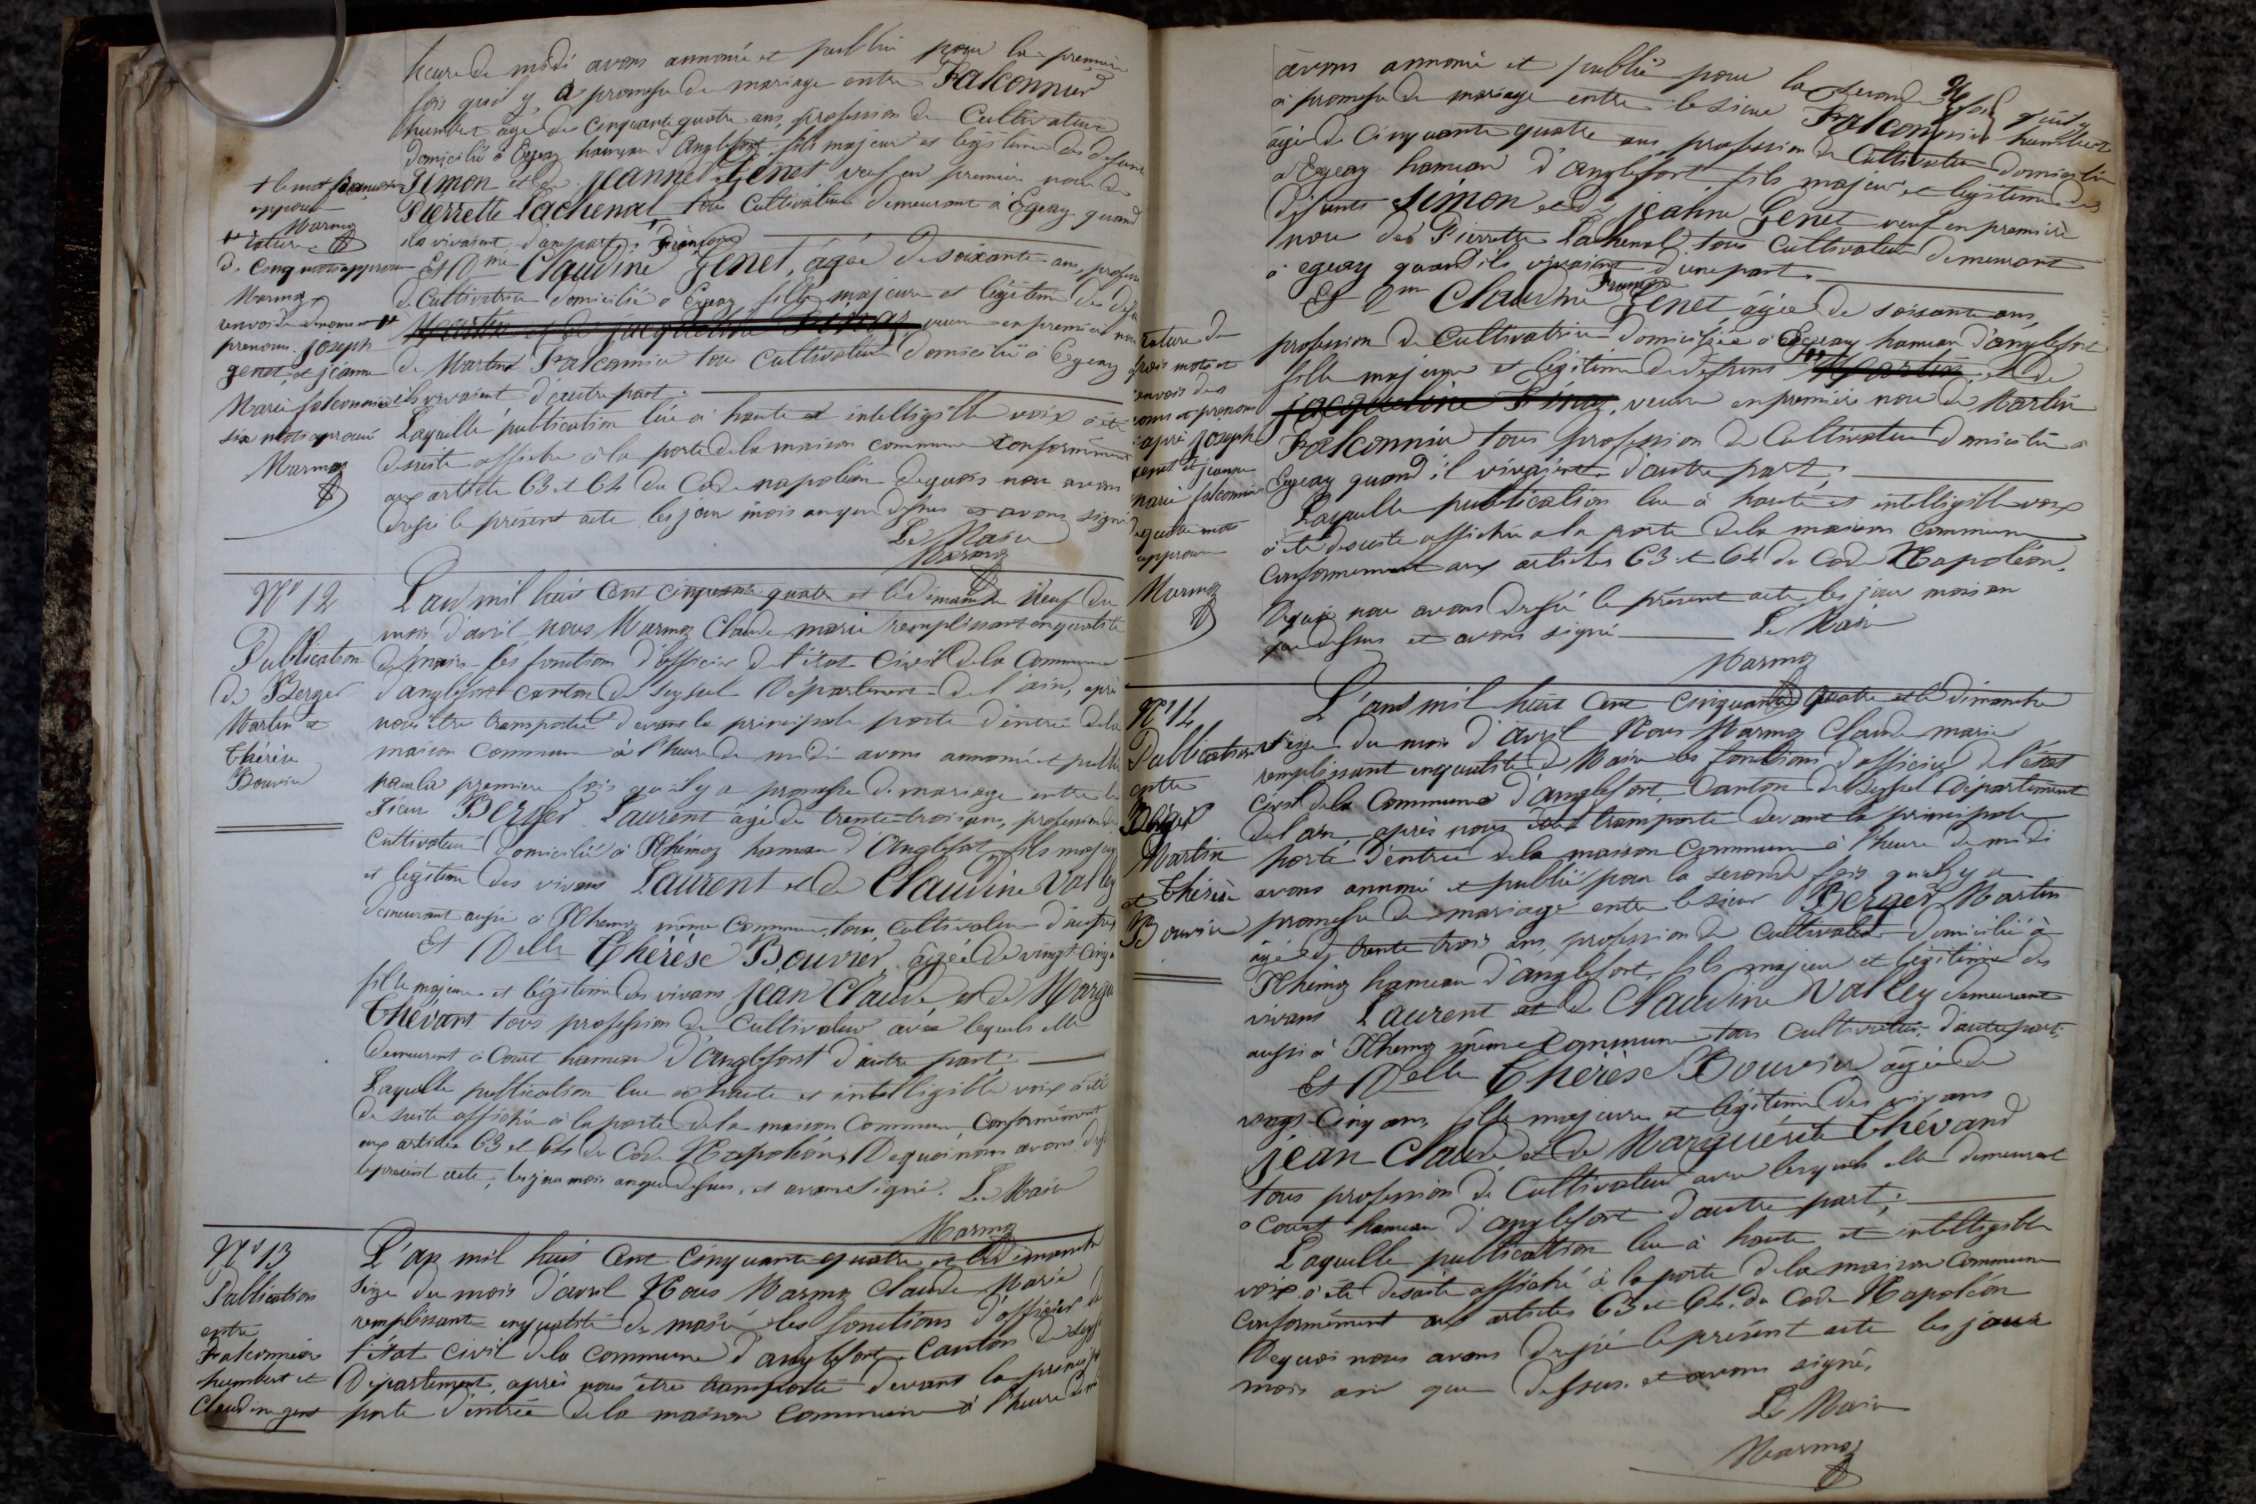 heure de midi avons annoncé et publié pour la première
fois qu'il y a promesse de mariage entre Falconnier
humbert âgé de cinquante quatre ans, profession de Cultivateur
domicilié à Egeay hameau d'Anglefort, fils majeur et légitime des defunts
Simon et de jeanne Genet veuf en premiere noce de
Pierrette Lachenal tous Cultivateur demeurant à Egeay quand
ils vivaient d'une part.
françoise
Et Dme Claudine Genet, âgée de soixante ans, profession
de Cultivatrice domiciliée à Egeay fille majeure et légitime des def
Martin et de jacqueline veuve en premiere noce
de Martin Falconnier tous cultivateur domicilié à Egeay
ils vivaient d'autre part.
Laquelle publication lue à haute et intelligible voix a été
de suite affiche à la porte de la maison commune conformément
aux article 63 et 64 du Code napoléon dequois nous avons
dressé le présent acte les jour mois an que dessus et avons signé
Le Maire
Marmoz
+ le mot françoise
approuvé
Marmoz
rature
de cinq mots approuvé
Marmoz
renvoi de noms et
prenoms joseph
genet et jeanne
Marie falconnier
six mots aprouvé
Marmoz
No 12
Publication
de Berger
Martin et
thérèse
Bouvier
L'an mil huit cent cinquante quatre et le dimanche neuf du
mois d'avril nous Marmoz Claude marie remplissant en qualité
de maire les fonctions d'officier de l'état civil de la Commune
d'anglefort canton de Seyssel Département de l'ain, après
nous être transporté devant la principale porte d'entrée de la
maison commune à l'heure de midi avons annoncé et publié
pour la premiere fois qu'il y a promesse de mariage entre le
sieur Berger Laurent âgé de trente trois ans, profession de
cultivateur domicilié à Rhémoz hameau d'Anglefort fils majeur
et légitime des vivans Laurent et de Claudine Valley
demeurant aussi à Rhemoz même commune, tous cultivateur d'autre part
Et Delle thérèse Bouvier âgée de vingt cinq a
fille majeure et légitime des vivans jean Claude et de Margu
thévant tous profession de Cultivateur avec lequels elle
demeurent à Court hameau d'anglefort d'autre part.
Laquelle publication lue à haute et intelligible voix a été
de suite affiche à la porte de la maison Commune Conformément
aux articles 63 et 64 du Code Napoléon, Dequoi nous avons dressé
le présent acte, les jour mois an que dessus, et avons signé. Le Maire
Marmoz
No 13
Publication
entre
Falconnier
humbert et
Claudine genet
L'an mil huit cent cinquante quatre et le dimanche
seize du mois d'avril Nous Marmoz Claude Marie
remplissant en qualité de maire les fonctions d'officier de
l'état civil de la commune d'anglefort Canton de Seyss
Département, après nous être transporté devant la principale
porte d'entrée de la maison commune à l'heure de mi
avons annoncé et publié pour la seconde fois qu'il y
a promesse de mariage entre le sieur Falconnier humbert
âgé de cinquante quatre ans profession de Cultivateur domicilié
à Egeay hameau d'anglefort fils majeur et légitime des
défunts Simon et de jeanne Genet veuf en première
noce de Pierrette Lachenal tous Cultivateur demeurant
à egeay quand ils vivaient d'une part.
françoise
Et Dme Claudine Genet, âgée de soixante ans,
profession de Cultivatrice domiciliée à Egeay hameau d'anglefort
fille majeure et légitime de defunts Martin et de
jacqueline, veuve en premiere noce de Martin
Falconnier tous profession de Cultivateur domicilié à
Egeay quand il vivaient d'autre part.
Laquelle publication lue à haute et intelligible voix
a été de suite affichée a la porte de la maison commune
Conformement aux articles 63 et 64 du Code Napoléon.
Dequoi nous avons dressé le présent acte, les jour mois an
que dessus et avons signé
Le Maire
Marmoz
rature de
trois mots et
renvoi des
noms et prenoms
après joseph
genet et jeanne
marie falconnier
quatre mots
approuvé
Marmoz
No 14
Publication
entre
Berger
Martin
et thérèse
Bouvier
L'an mil huit cent cinquante quatre et le dimanche
seize du mois d'avril Nous Marmoz Claude marie
remplissant en qualité de Maire les fonctions d'officier de l'état
civil de la Commune d'anglefort Canton de Seyssel Département
de l'ain, après nous être transporté devant la principale
porte d'entrée de la maison commune à l'heure de midi
avons annoncé et publié pour la seconde fois qu'il y a
promesse de mariage entre le sieur Berger Martin
âgé de trente trois ans, profession de cultivateur domicilié à
Rhémoz hameau d'anglefort, fils majeur et légitime des
vivans Laurent et de Claudine Valley demeurant
aussi à Rhemoz même commune tous cultivateur d'autre part.
Et Delle thérèse Bouvier âgée de
vingt-cinq ans, fille majeure et légitime des vivans
jean Claude et de Marguérite thévand
tous profession de Cultivateur avec lesquels elle demeurent
à Court hameau d'anglefort d'autre part.
Laquelle publication lue à haute et intelligible
voix a été de suite affiché à la porte de la maison commune
Conformément aux articles 63 et 64 du Code Napoléon
Dequoi nous avons dressé le présent acte les jour
mois an que dessus et avons signé.
Le Maire
Marmoz